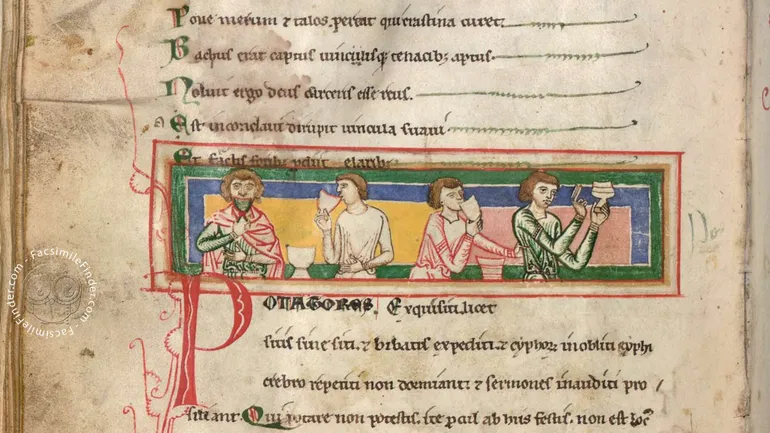 Pone merum & talos. pereat qui crastina curet.
Bachus erat captus uinculisq; tenacib; aptus.
Noluit ergo deus carceris esse reus.
Est in conclaui dirupit uincula suaui
Et fractis foribus
POTATORES. Exquisiti. licet
sitis sine siti. & bibatis expediti. & cyphorum inobliti scyphi
crebro repetiti non dormiant. & sermones inauditi pro
siliant. Qui potare non potestis. ite procul ab his festis. non est loc
FacsimileFinder.com · FacsimileFinder.com